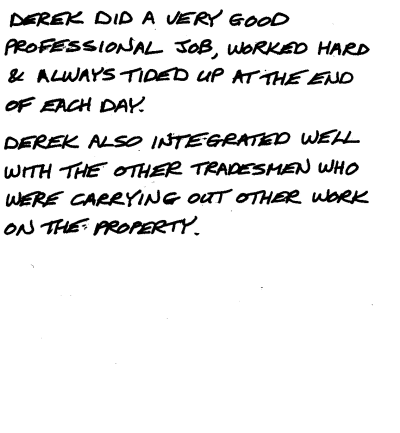 DEREK DID A VERY GOOD
PROFESSIONAL JOB, WORKED HARD
& ALWAYS TIDED UP AT THE END
OF EACH DAY.
DEREK ALSO INTEGRATED WELL
WITH THE OTHER TRADESMEN WHO
WERE CARRYING OUT OTHER WORK
ON THE PROPERTY.